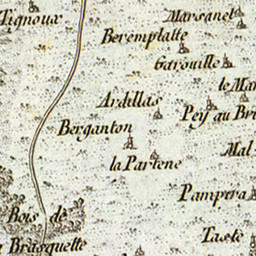 Tignoux
Marsanet
Beremplatte
Garouille
le Mar
Ardillas
Pey au Bri
Berganton
Mal
la Partene
Pampera
Bois de
Brasquette
Taste